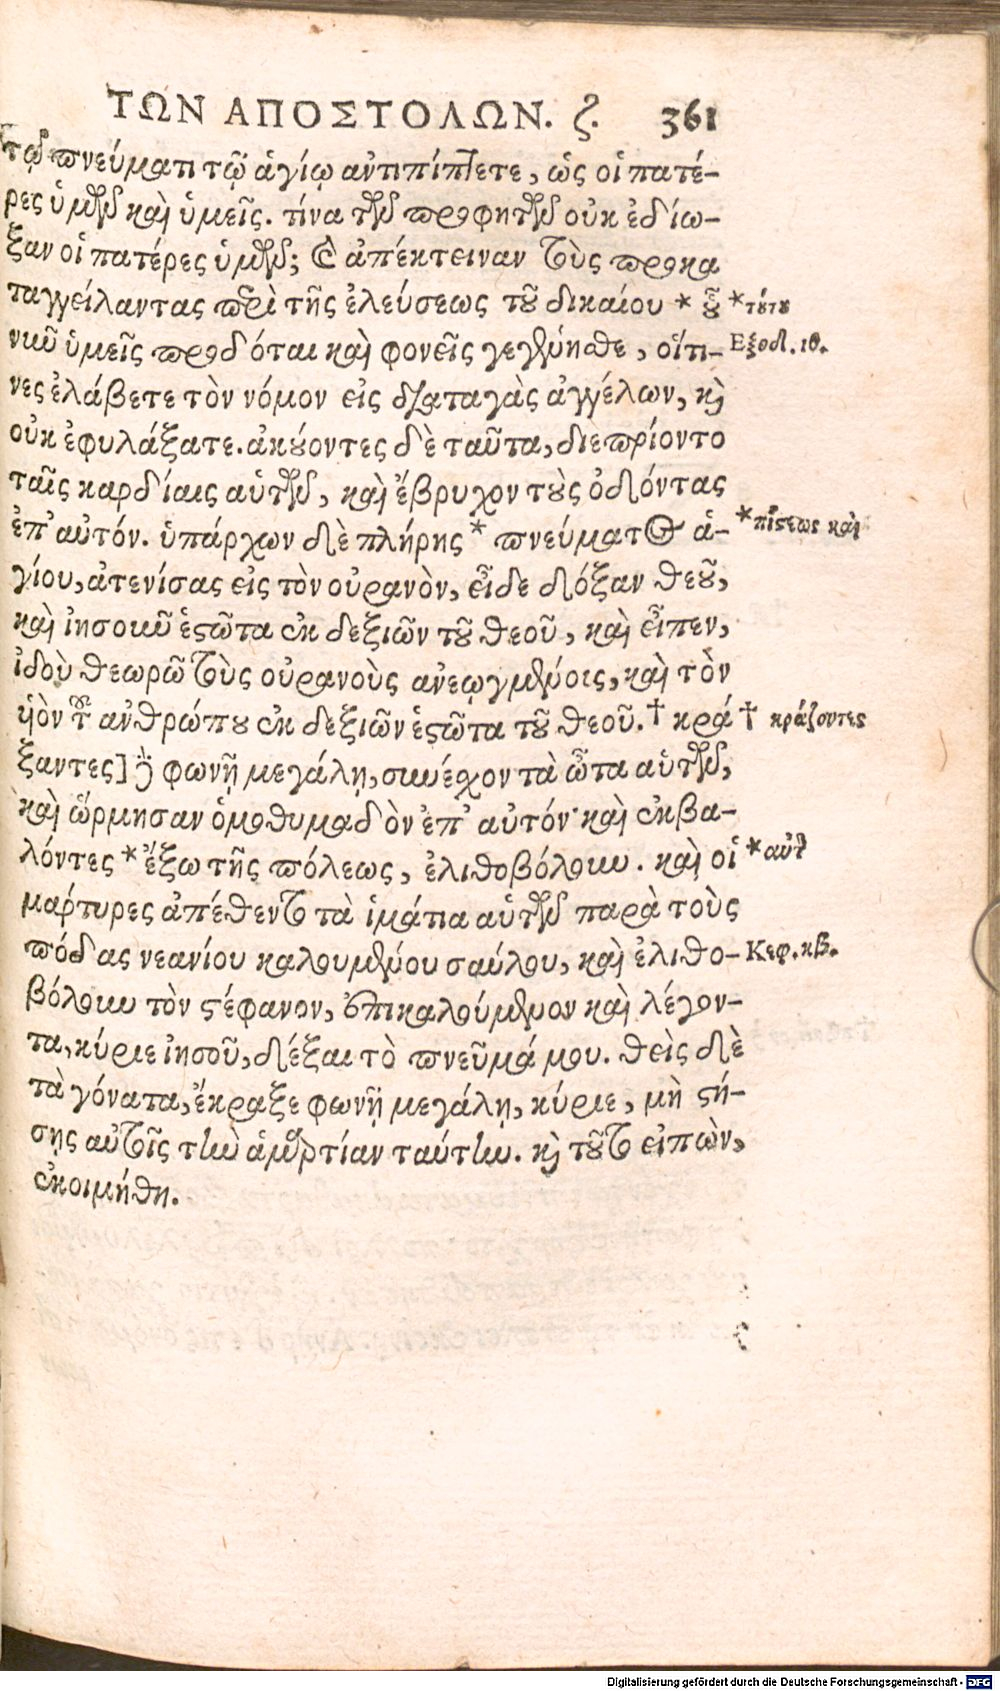 ΤΩΝ ΑΠΟΣΤΟΛΩΝ. ζ. 361
τῷ πνεύματι τῷ ἁγίῳ ἀντιπίπτετε, ὡς οἱ πατέ-
ρες ὑμῶν καὶ ὑμεῖς. τίνα τῶν προφητῶν οὐκ ἐδίω-
ξαν οἱ πατέρες ὑμῶν; καὶ ἀπέκτειναν τοὺς προκα
ταγγείλαντας περὶ τῆς ἐλεύσεως τοῦ δικαίου * οὗ *τούτου
νῦν ὑμεῖς προδόται καὶ φονεῖς γεγένησθε, οἵτι- Εξοδ. ιθ.
νες ἐλάβετε τὸν νόμον εἰς διαταγὰς ἀγγέλων, καὶ
οὐκ ἐφυλάξατε. ἀκούοντες δὲ ταῦτα, διεπρίοντο
ταῖς καρδίαις αὑτῶν, καὶ ἔβρυχον τοὺς ὀδόντας
ἐπ' αὐτόν. ὑπάρχων δὲ πλήρης * πνεύματος ἁ- *πίστεως καὶ
γίου, ἀτενίσας εἰς τὸν οὐρανὸν, εἶδε δόξαν θεοῦ,
καὶ ἰησοῦν ἑστῶτα ἐκ δεξιῶν τοῦ θεοῦ, καὶ εἶπεν,
ἰδοὺ θεωρῶ τοὺς οὐρανοὺς ἀνεῳγμένοις, καὶ τὸν
υἱὸν τοῦ ἀνθρώπου ἐκ δεξιῶν ἑστῶτα τοῦ θεοῦ. † κρά † κράζοντες
ξαντες] δὲ φωνῇ μεγάλῃ, συνέχον τὰ ὦτα αὑτῶν,
καὶ ὥρμησαν ὁμοθυμαδὸν ἐπ' αὐτόν· καὶ ἐκβα-
λόντες * ἔξω τῆς πόλεως, ἐλιθοβόλουν. καὶ οἱ *αὐτὸν
μάρτυρες ἀπέθεντο τὰ ἱμάτια αὑτῶν παρὰ τοὺς
πόδας νεανίου καλουμένου σαύλου, καὶ ἐλιθο- Κεφ. κβ.
βόλουν τὸν στέφανον, ἐπικαλούμενον καὶ λέγον-
τα, κύριε ἰησοῦ, δέξαι τὸ πνεῦμά μου. θεὶς δὲ
τὰ γόνατα, ἔκραξε φωνῇ μεγάλῃ, κύριε, μὴ στή-
σῃς αὐτοῖς τὴν ἁμαρτίαν ταύτην. καὶ τοῦτο εἰπὼν,
ἐκοιμήθη.
Digitalisierung gefördert durch die Deutsche Forschungsgemeinschaft - DFG